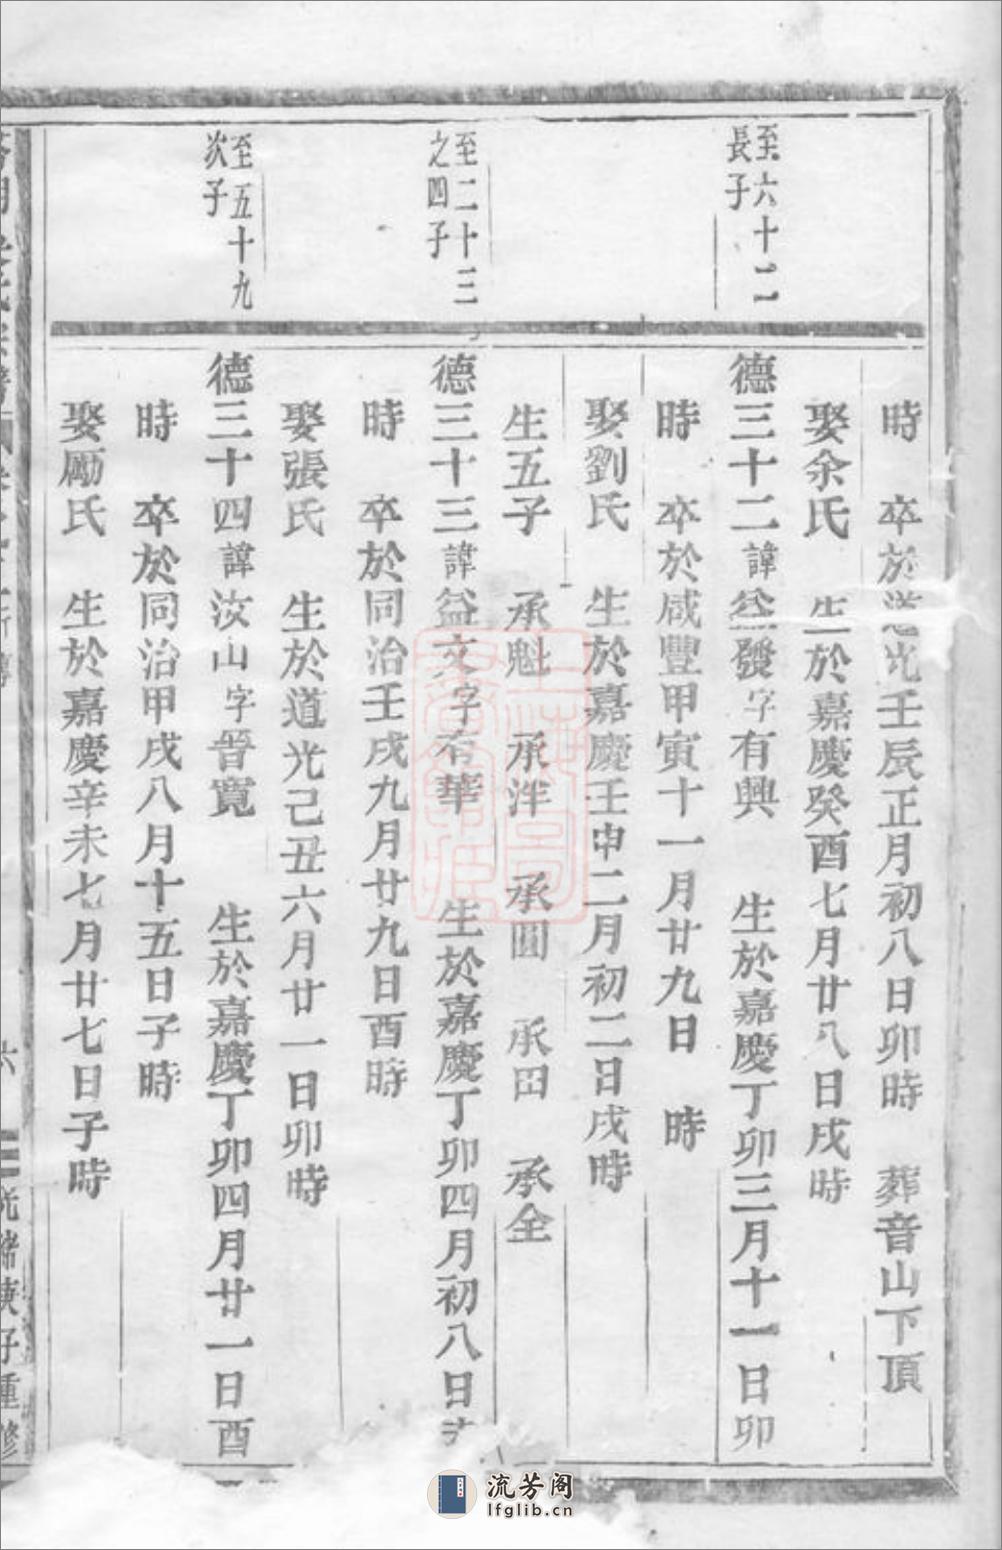 時　卒於道光壬辰正月初八日卯時　葬音山下頂
娶余氏　生於嘉慶癸酉七月廿八日戌時
至六十二
長子
德三十二諱益發字有興　生於嘉慶丁卯三月十一日卯
時　卒於咸豐甲寅十一月廿九日　時
娶劉氏　生於嘉慶壬申二月初二日戌時
生五子　承魁　承泮　承圓　承田　承全
至二十三
之四子
德三十三諱益文字有華　生於嘉慶丁卯四月初八日
時　卒於同治壬戌九月廿九日酉時
娶張氏　生於道光己丑六月廿一日卯時
至五十九
次子
德三十四諱汝山字晉寬　生於嘉慶丁卯四月廿一日酉
時　卒於同治甲戌八月十五日子時
娶勵氏　生於嘉慶辛未七月廿七日子時
六
光緒庚子重修
流芳阁
lfglib.cn